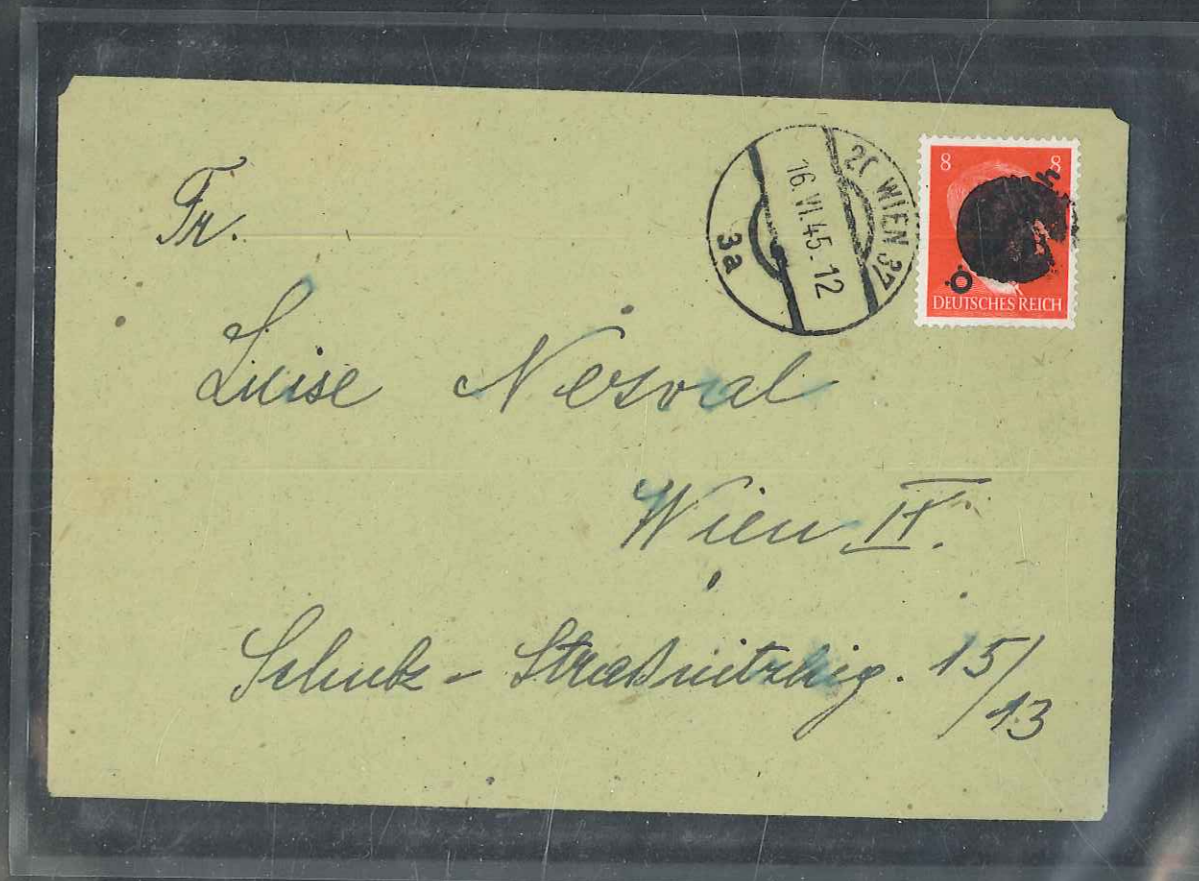 Fr.
Luise Nesval
Wien IX.
Schubz - Straßnitzkig. 15/
13
WIEN 37
16.VI.45.12
3a
8 8
DEUTSCHES REICH